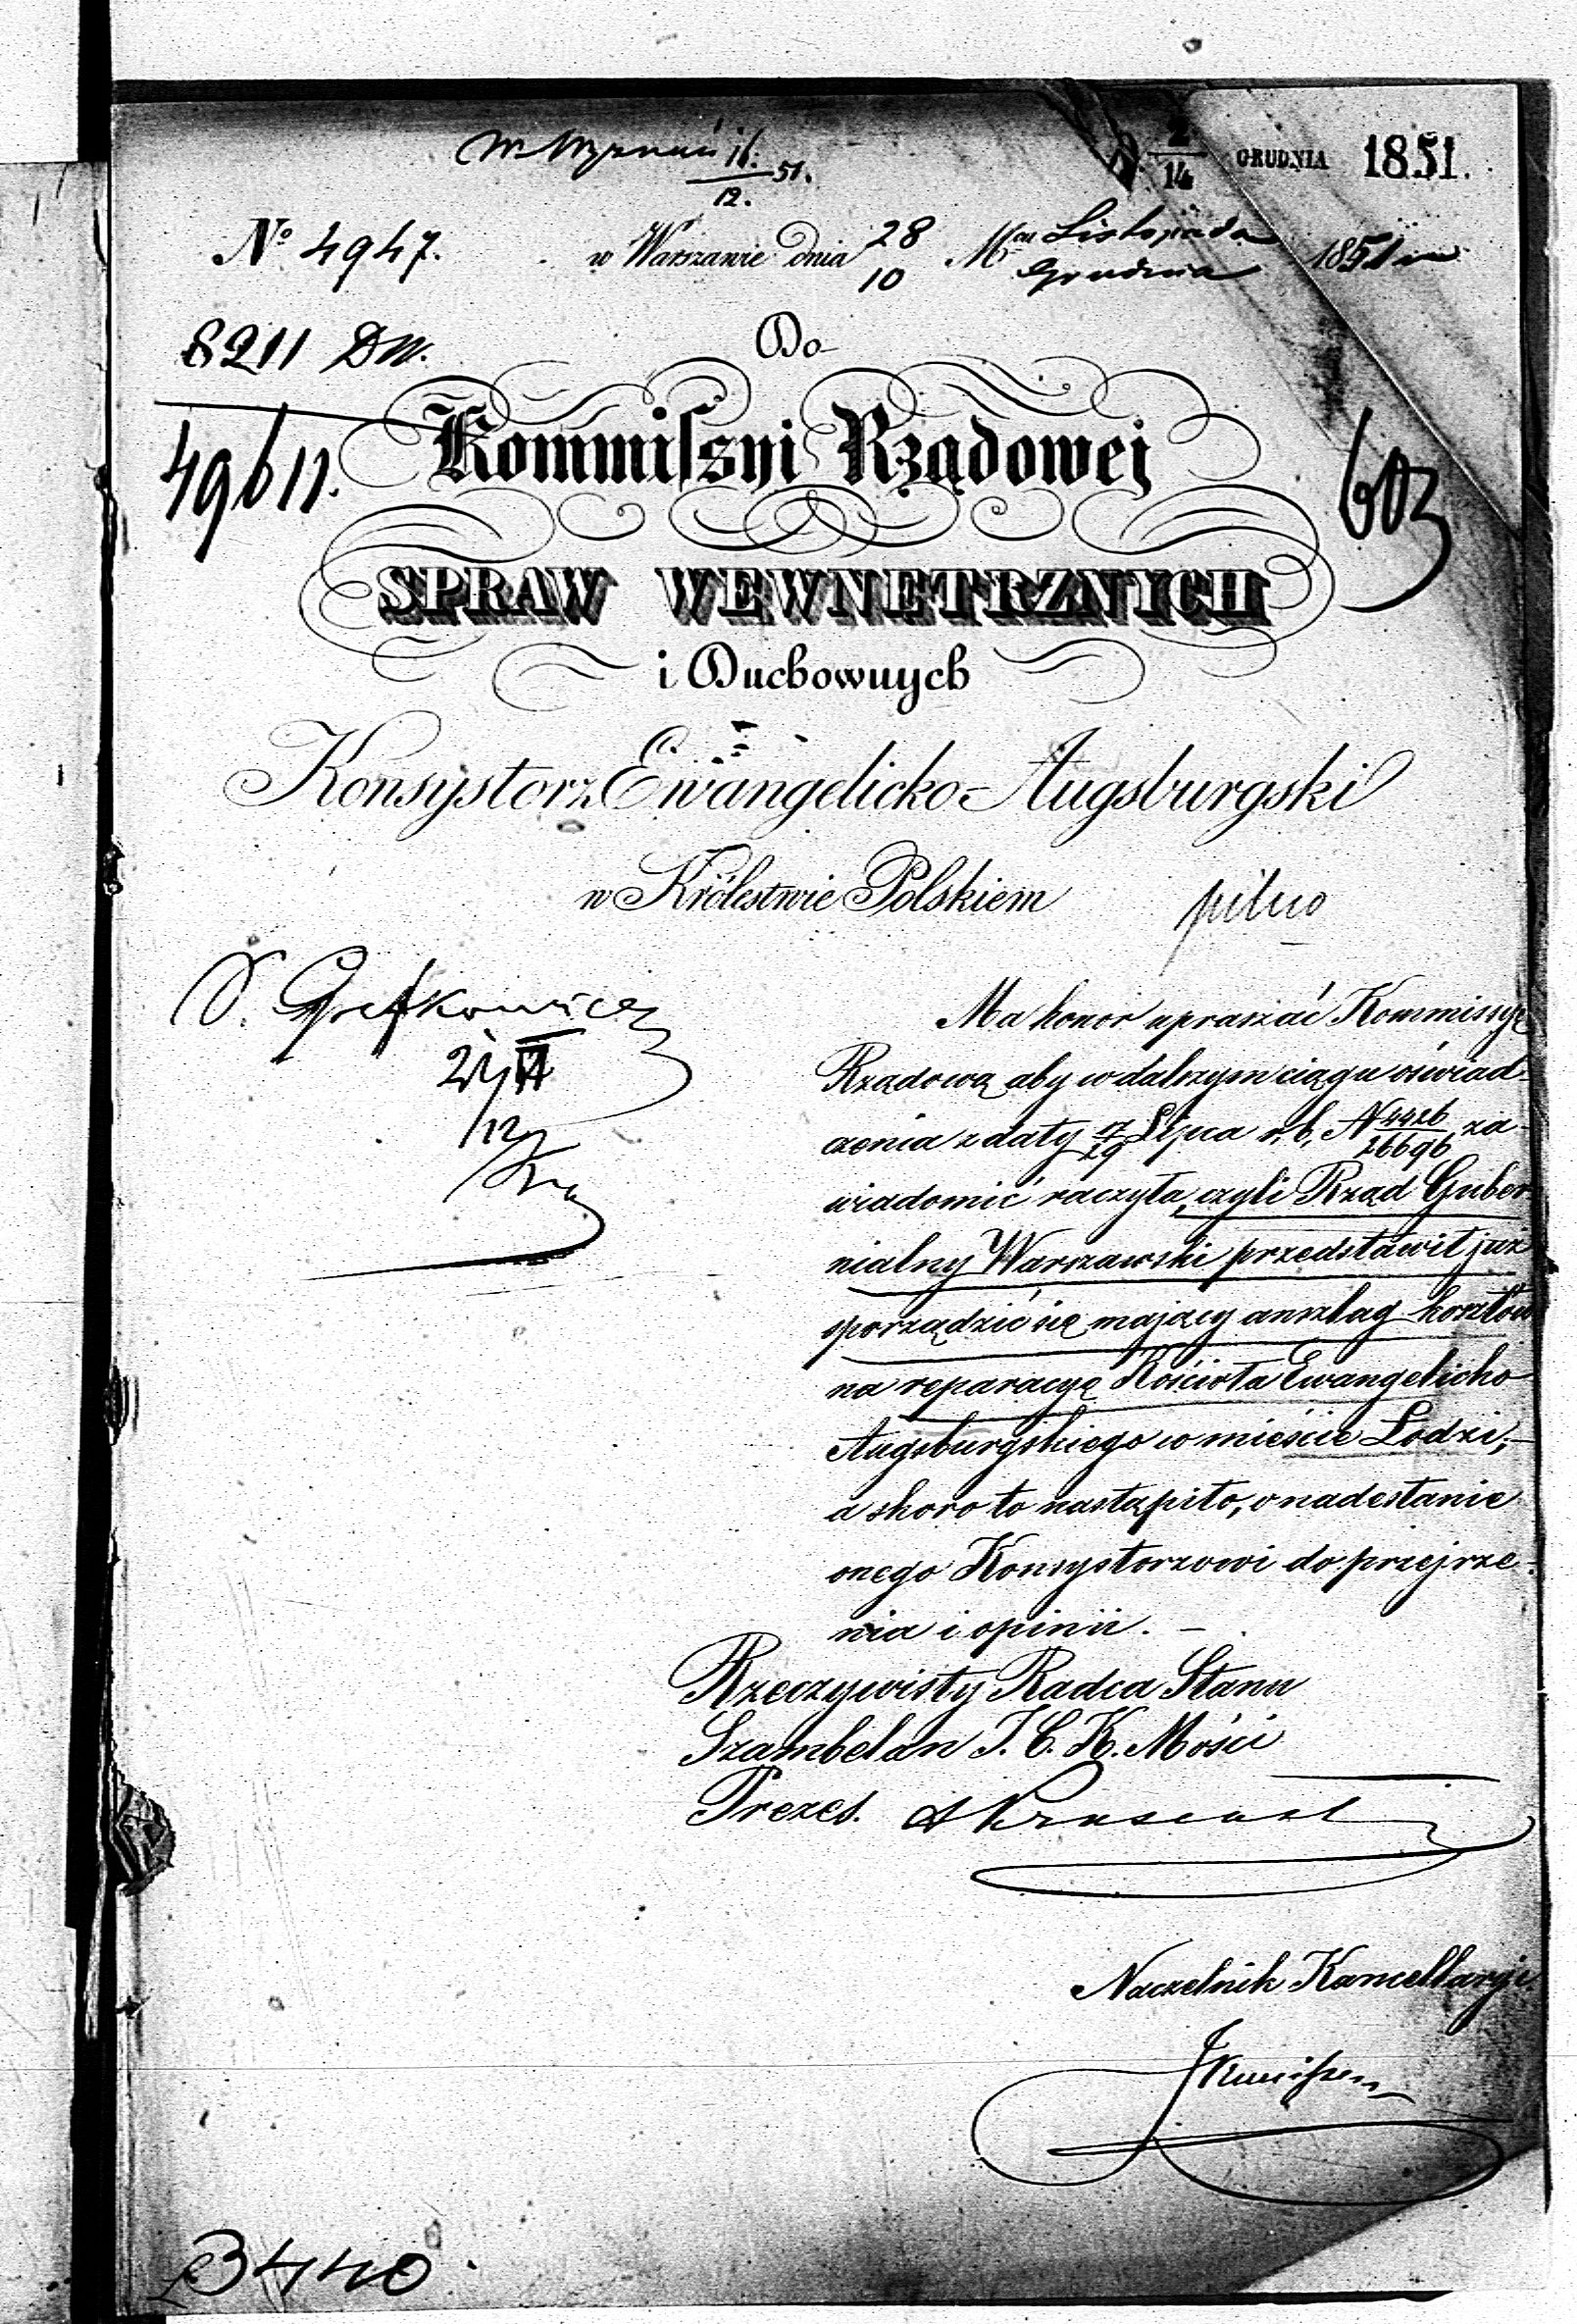 W. Wyznań 16. / 12. 51.
2 / 14 GRUDNIA 1851.
№ 4947. w Warszawie dnia 28 / 10 Mca Listopada / Grudnia 1851 r
8211 DW.
49611.
Do
Kommissyi Rządowej
603
SPRAW WEWNĘTRZNYCH
i Duchownych
Konsystorz Ewangelicko-Augsburgski
w Królestwie Polskiem
pilno
Ma honor upraszać Kommissyę
Rządową aby w dalszym ciągu oświad-
czenia z daty 17/29 Lipca r. b. N 4426/26696 za-
wiadomić raczyła, czyli Rząd Guber-
nialny Warszawski przedstawił już
sporządzić się mający anszlag kosztów
na reparacyę Kościoła Ewangelicko
Augsburgskiego w mieście Łodzi,-
a skoro to nastąpiło, o nadesłanie
onego Konsystorzowi do przejrze-
nia i opinii. -
Rzeczywisty Radca Stanu
Szambelan J. C. K. Mości
Prezes.
Naczelnik Kancellaryi
3440